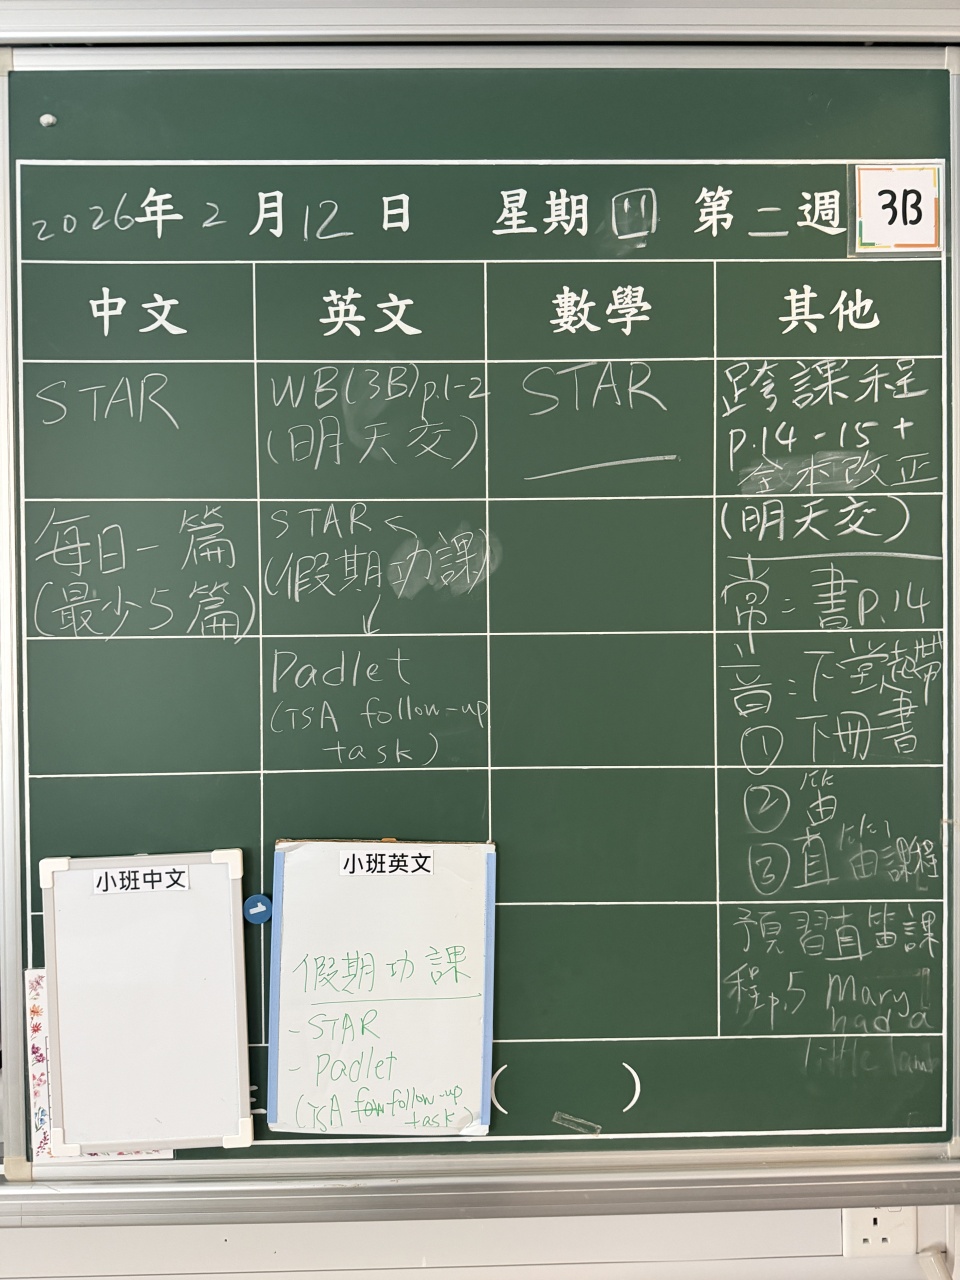 2026年2月12日 星期四 第二週 3B
中文 英文 數學 其他
STAR
每日一篇
(最少5篇)
WB(3B)p.1-2
(明天交)
STAR
(假期功課)
Padlet
(TSA follow-up
task)
STAR
跨課程
p.14-15+
全本改正
(明天交)
常:書p.14
音:下堂起帶
① 下冊書
② 笛
③ 直笛課程
預習直笛課
程p.5 Mary
had a
little lamb
小班中文
1
小班英文
假期功課
- STAR
- Padlet
(TSA follow-up
task)
( )